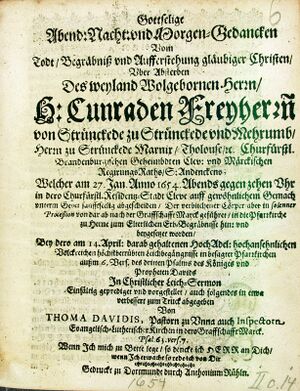 Gottselige
Abend: Nacht: und Morgen-Gedancken
Vom
Todt/ Begräbniß und Aufferstehung gläubiger Christen/
Uber Absterben
Des weyland Wolgebornen Herrn/
H: Cunraden Freyherrn
von Strünckede zu Strünckede und Mehrumb/
Herrn zu Strünckede Marnir/ Tholouse/ ꝛc. Churfürstl.
Brandenburgischen Geheimbdten Clev: und Märckischen
Regirungs Raths/ S: Andenckens:
Welcher am 27. Jan. Anno 1654. Abends gegen zehen Uhr
in dero Churfürstl. Residentz-Stadt Cleve auff gewöhnlichem Gemach
unterm Gebet sanfftselig abgescheiden/ Der verblichene Cörper aber in
Procession von dar ab nach der Graffschafft Marck geführet/ in die Pfarrkirche
zu Herne zum Elterlichen Erb-Begräbniß hin: und
beygesetzet worden/
Bey dero am 14. April: darab gehaltenen Hoch Adel: hochansehnlichen
Volckreichen höchstbetrübten Leichbegängniß in besagter Pfarrkirchen
außm 6. Vers. des dritten Psalms des Königes und
Propheten Davids
In Christlicher Leich-Sermon
Einfältig gepredigt und vorgestellet/ auch folgends in etwa
verbessert zum Truck abgegeben
Von
THOMA DAVIDIS, Pastorn zu Unna auch Inspectorn
Evangelisch-Lutherischer Kirchen in dero Graffschafft Marck.
Psal. 63. vers. 7.
Wenn Ich mich zu Bette lege/ so dencke ich HERR an Dich/
wenn Ich erwache so rede ich von Dir
Gedruckt zu Dortmundt durch Anthonium Rühln.
1654